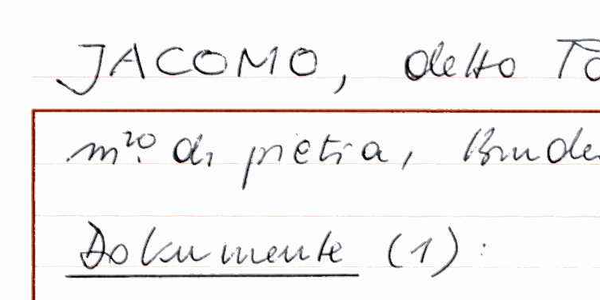 JACOMO, detto
m.ro di pietra,
Dokumente (1):